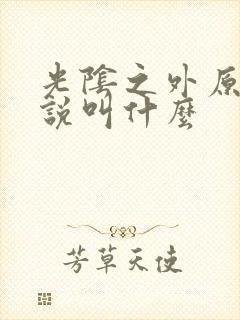 光陰之外原
說叫什麼
芳草天使